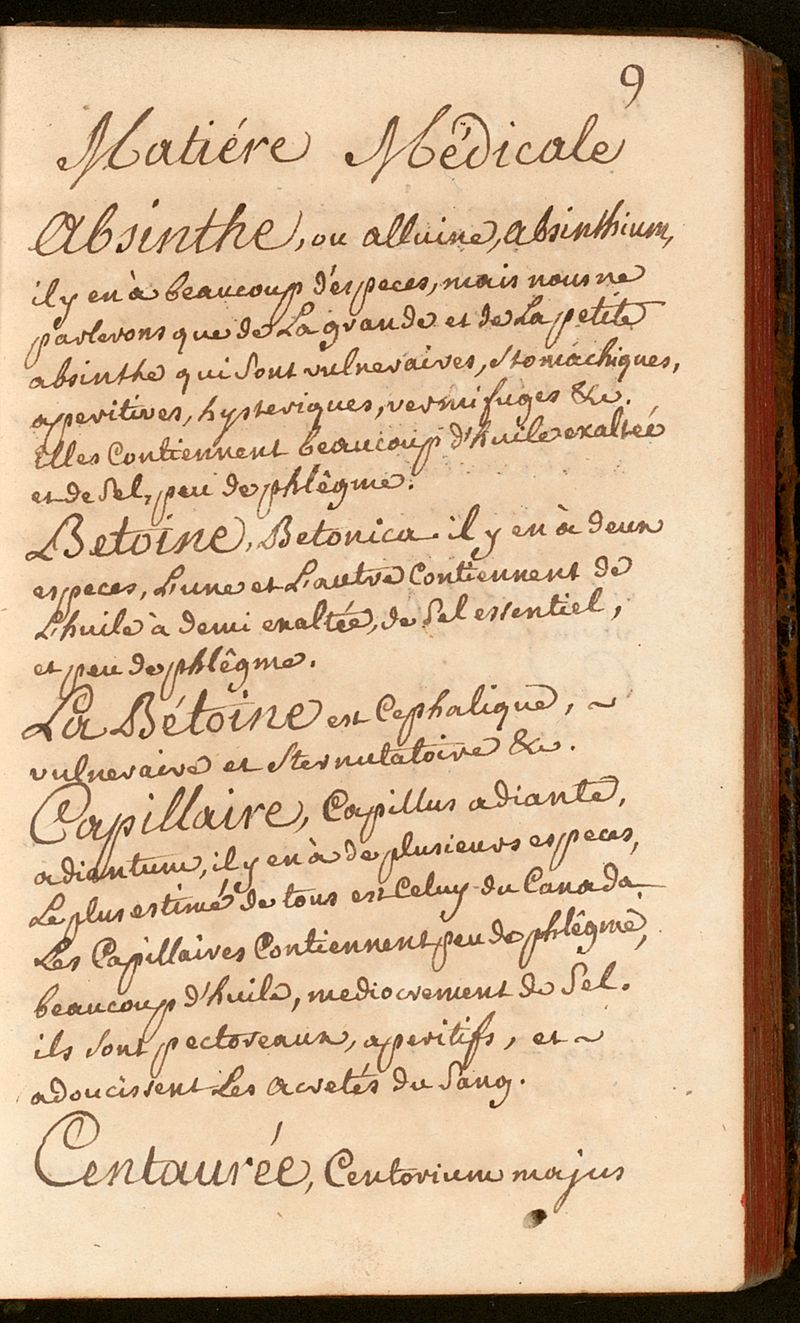 9
Matiére Médicale
Absinthe, ou alluine, absinthium,
il y en à beaucoup d'especes, mais nous ne
parlerons que de La grande et de La petite
absinthe qui sont vulneraires, stomachiques,
aperitives, hysteriques, vermifuges &c.
Elles Contiennent beaucoup d'huile exaltée
et de sel, peu de phlêgme.
Betoine, Betonica. il y en à deux
especes, L'une et L'autre Contiennent de
L'huile à demi exaltée, de sel essentiel,
et peu de phlêgme.
La Bétoine est Cephalique, ~
vulneraire et sternutatoire &c.
Capillaire, Capillus adiante,
adiantum, il y en à de plusieurs especes,
Le plus estimé de tous est Celuy du Canada
Les Capillaires Contiennent peu de phlêgme,
beaucoup d'huile, mediocrement de sel.
ils sont pectoreaux, aperitifs, et ~
adoucissent Les acretés du sang.
Centaurée, Centorium majus